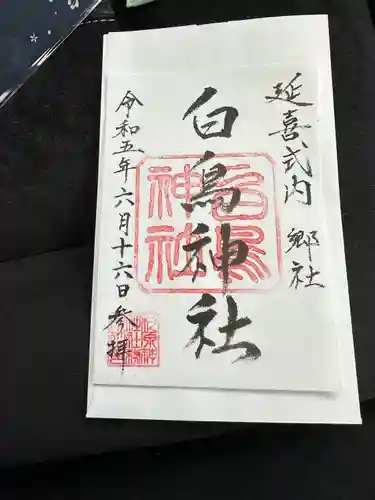 延喜式内 郷社
白鳥神社
令和五年六月十六日参拝
白鳥
神社